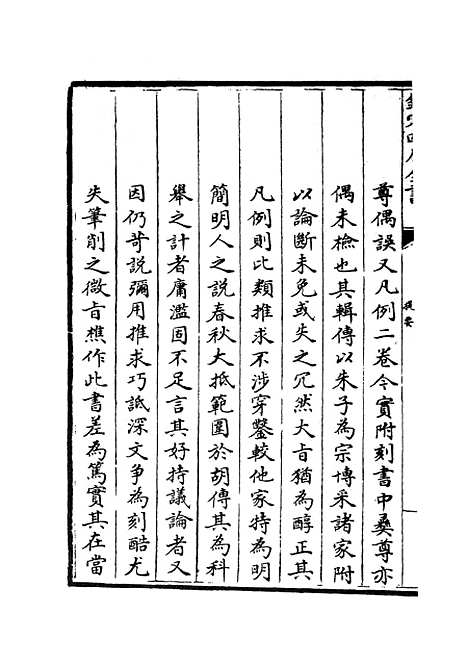 尊偶誤又凡例二卷今實附刻書中彞尊亦
偶未檢也其輯傳以朱子為宗博采諸家附
以論斷未免或失之冗然大旨猶為醇正其
凡例則比類推求不涉穿鑿較他家持為明
簡明人之說春秋大抵範圍於胡傳其為科
舉之計者庸濫固不足言其好持議論者又
因仍苛說彌用推求巧詆深文爭為刻酷尤
失筆削之微旨樵作此書差為篤實其在當
提要